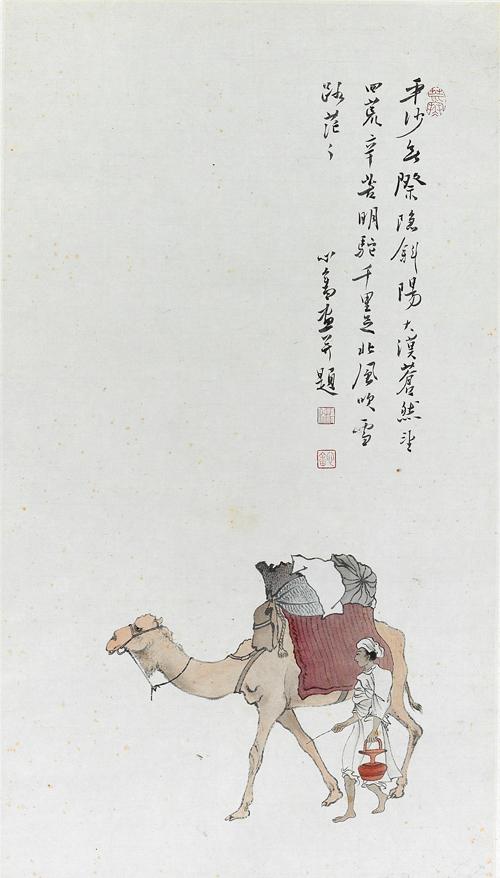 平沙無際隱斜陽大漠蒼然望
四荒辛苦明駝千里足北風吹雪
路茫々
心畬畫并題